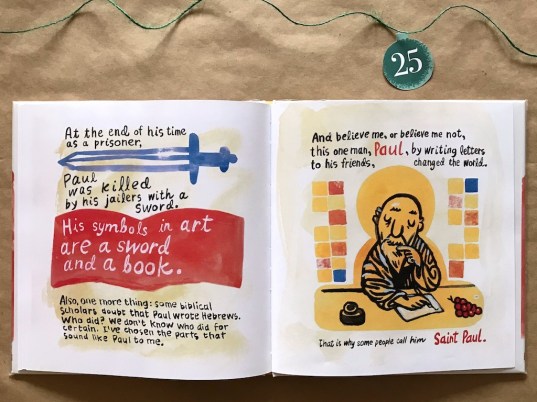 25
At the end of his time
as a prisoner,
Paul
was killed
by his jailers with a
sword.
His symbols in art
are a sword
and a book.
Also, one more thing: some biblical
scholars doubt that Paul wrote Hebrews.
Who did? We don't know who did for
certain. I've chosen the parts that
sound like Paul to me.
And believe me, or believe me not,
this one man, Paul, by writing letters
to his friends, changed the world.
That is why some people call him Saint Paul.